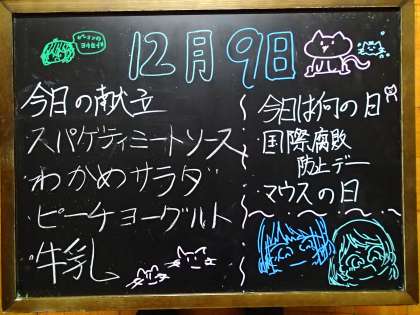 12月9日
今日の献立
スパゲティミートソース
わかめサラダ
ピーチヨーグルト
牛乳
今日は何の日
国際腐敗
防止デー
・マウスの日